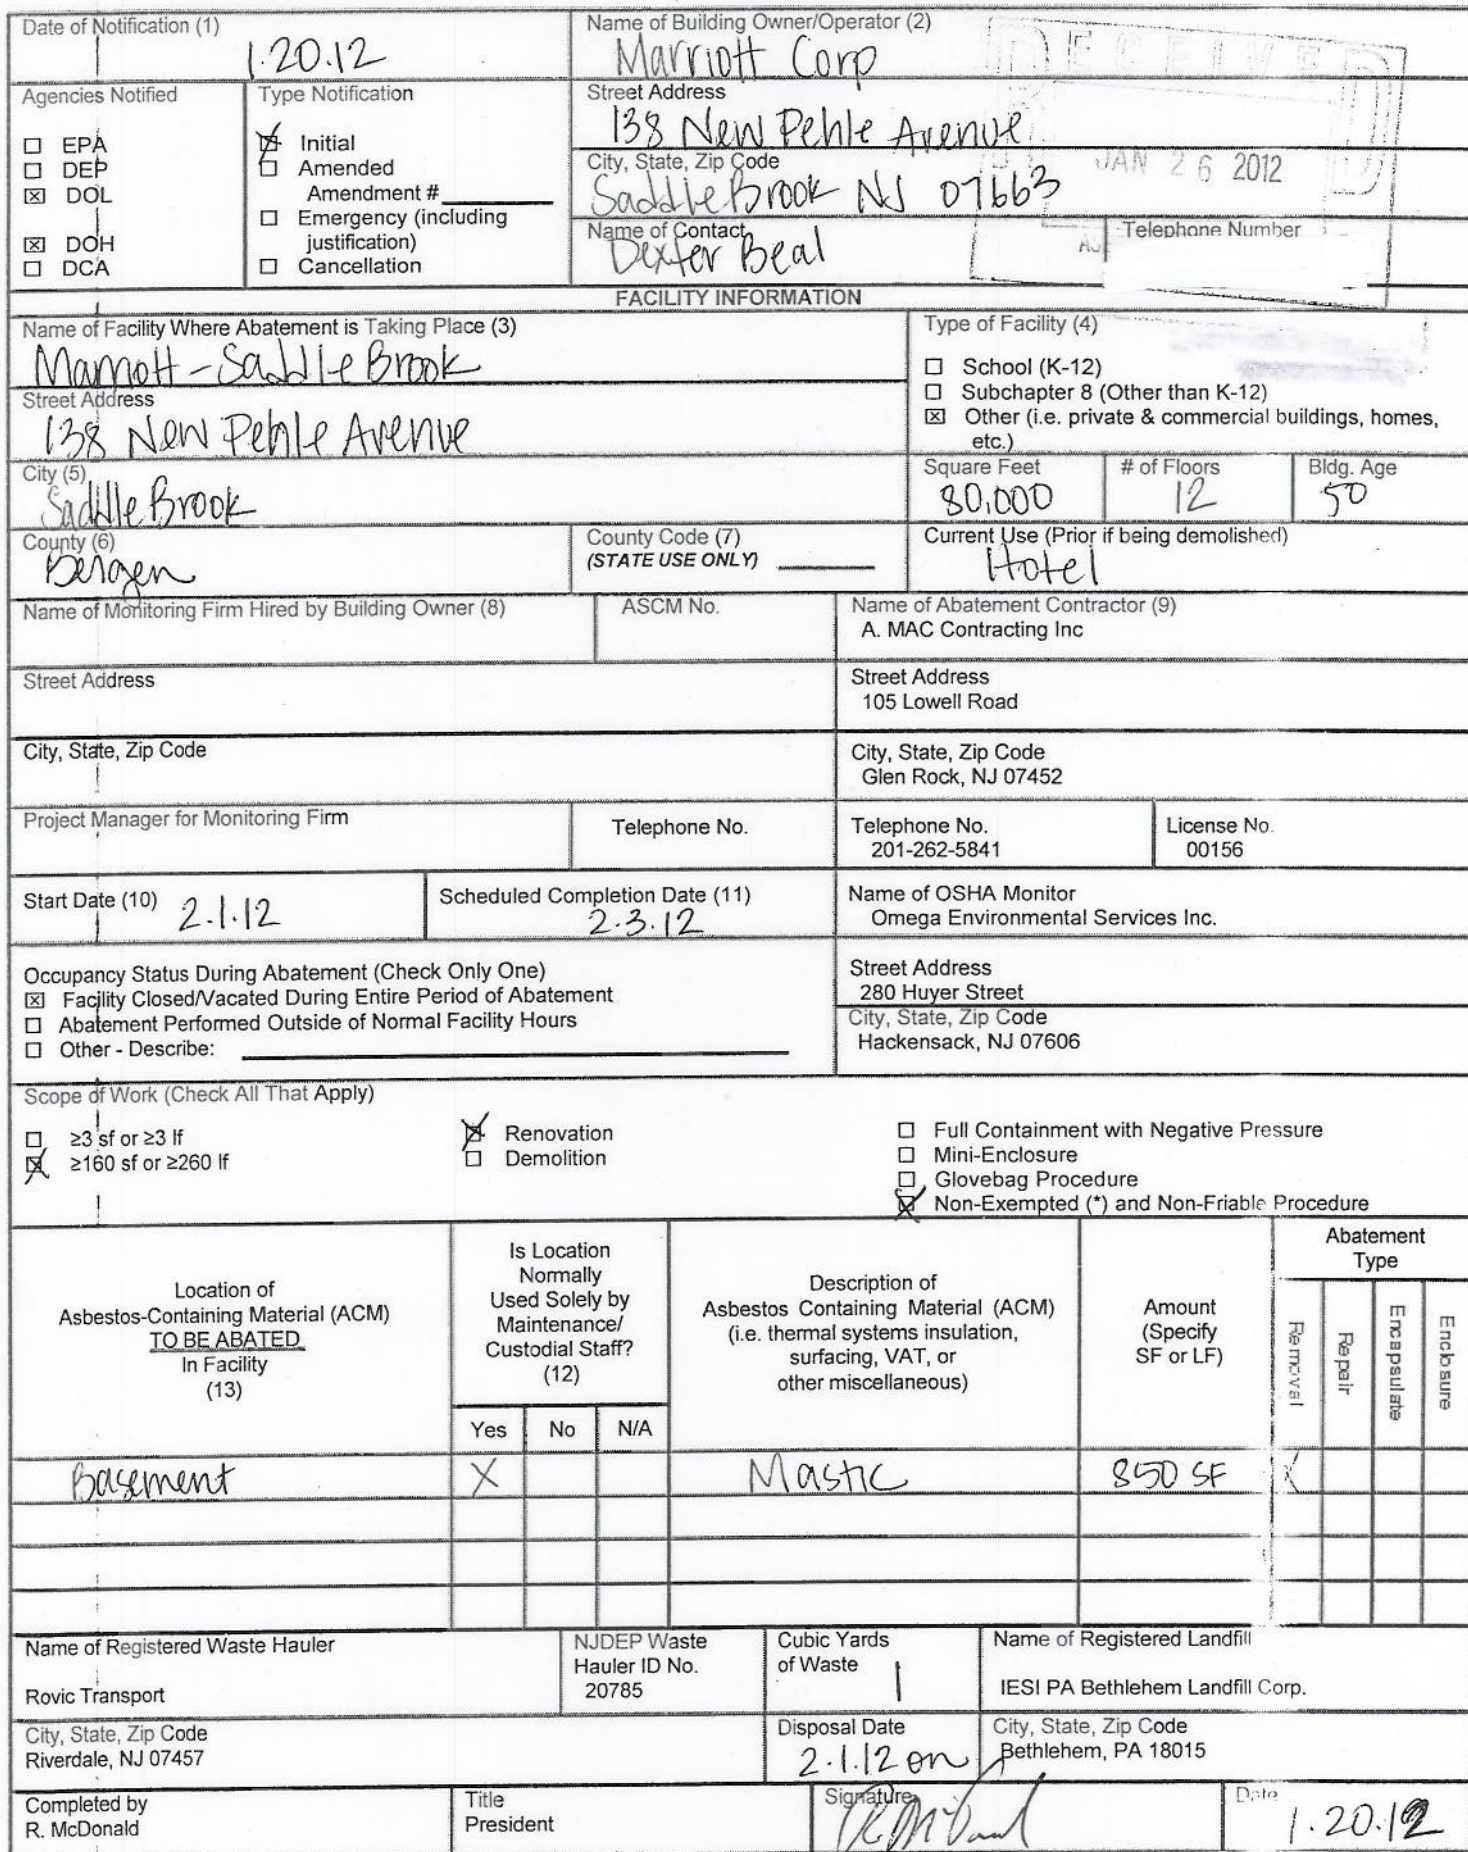 Date of Notification (1)
1.20.12
Name of Building Owner/Operator (2)
Marriott Corp
RECEIVED
Agencies Notified
☐ EPA
☐ DEP
☒ DOL
☒ DOH
☐ DCA
Type Notification
☒ Initial
☐ Amended
Amendment #
☐ Emergency (including
justification)
☐ Cancellation
Street Address
138 New Pehle Avenue
City, State, Zip Code
Saddle Brook NJ 07663
JAN 26 2012
Name of Contact
Dexter Beal
Telephone Number
FACILITY INFORMATION
Name of Facility Where Abatement is Taking Place (3)
Marriott - Saddle Brook
Street Address
138 New Pehle Avenue
Type of Facility (4)
☐ School (K-12)
☐ Subchapter 8 (Other than K-12)
☒ Other (i.e. private & commercial buildings, homes,
etc.)
City (5)
Saddle Brook
Square Feet
80,000
# of Floors
12
Bldg. Age
50
County (6)
Bergen
County Code (7)
(STATE USE ONLY)
Current Use (Prior if being demolished)
Hotel
Name of Monitoring Firm Hired by Building Owner (8)
ASCM No.
Name of Abatement Contractor (9)
A. MAC Contracting Inc
Street Address
Street Address
105 Lowell Road
City, State, Zip Code
City, State, Zip Code
Glen Rock, NJ 07452
Project Manager for Monitoring Firm
Telephone No.
Telephone No.
201-262-5841
License No.
00156
Start Date (10) 2.1.12
Scheduled Completion Date (11)
2.3.12
Name of OSHA Monitor
Omega Environmental Services Inc.
Occupancy Status During Abatement (Check Only One)
☒ Facility Closed/Vacated During Entire Period of Abatement
☐ Abatement Performed Outside of Normal Facility Hours
☐ Other - Describe:
Street Address
280 Huyer Street
City, State, Zip Code
Hackensack, NJ 07606
Scope of Work (Check All That Apply)
☐ ≥3 sf or ≥3 lf
☒ ≥160 sf or ≥260 lf
☒ Renovation
☐ Demolition
☐ Full Containment with Negative Pressure
☐ Mini-Enclosure
☐ Glovebag Procedure
☒ Non-Exempted (*) and Non-Friable Procedure
Location of
Asbestos-Containing Material (ACM)
TO BE ABATED
In Facility
(13)
Is Location
Normally
Used Solely by
Maintenance/
Custodial Staff?
(12)
Yes No N/A
Description of
Asbestos Containing Material (ACM)
(i.e. thermal systems insulation,
surfacing, VAT, or
other miscellaneous)
Amount
(Specify
SF or LF)
Abatement
Type
Removal
Repair
Encapsulate
Enclosure
Basement X Mastic 850 SF X
Name of Registered Waste Hauler
Rovic Transport
NJDEP Waste
Hauler ID No.
20785
Cubic Yards
of Waste
1
Name of Registered Landfill
IESI PA Bethlehem Landfill Corp.
City, State, Zip Code
Riverdale, NJ 07457
Disposal Date
2.1.12 on
City, State, Zip Code
Bethlehem, PA 18015
Completed by
R. McDonald
Title
President
Signature
Date
1.20.12